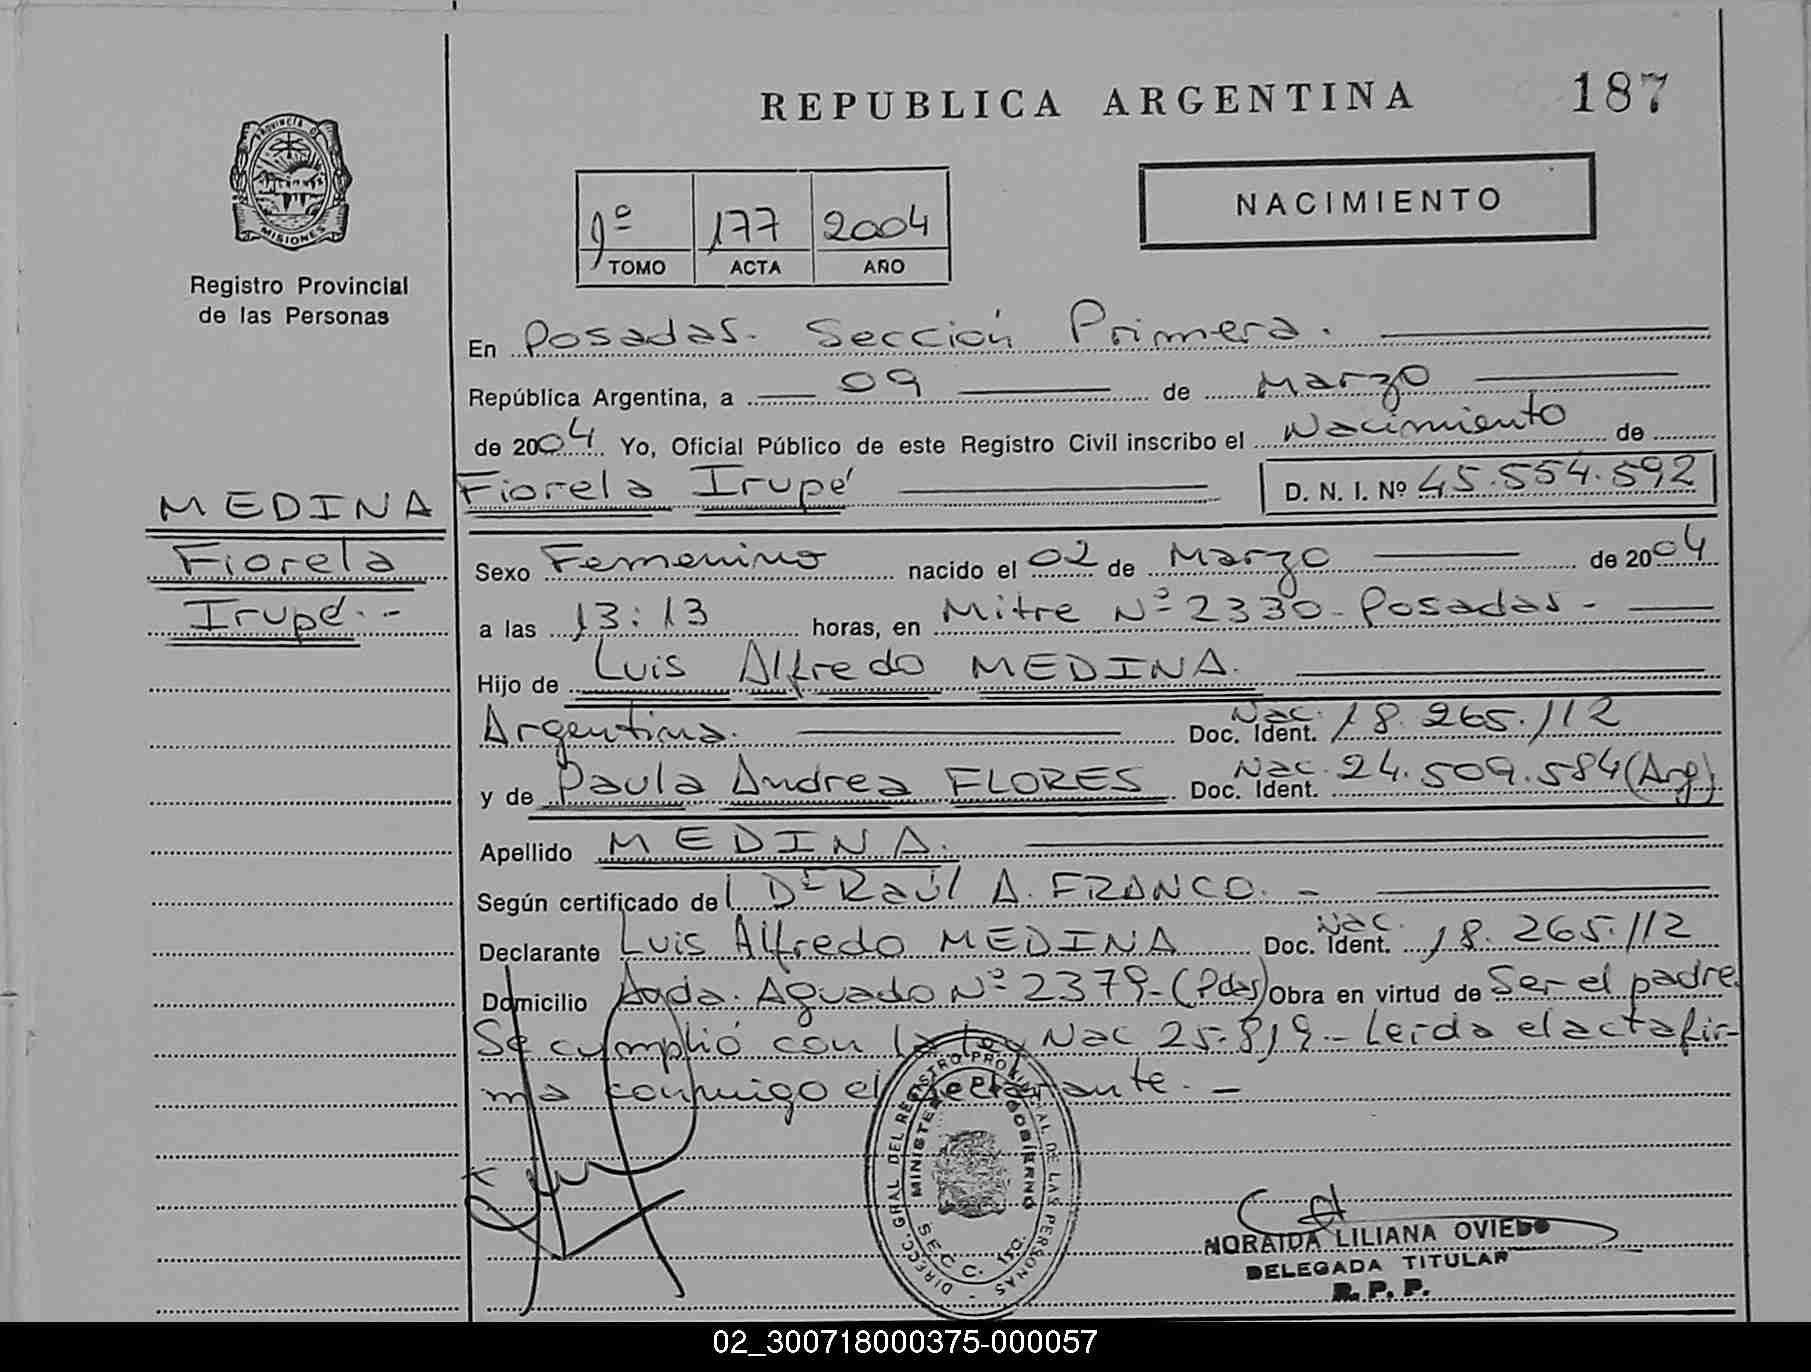 REPUBLICA ARGENTINA
187
PROVINCIA DE
MISIONES
Registro Provincial
de las Personas
1º 177 2004
TOMO ACTA AÑO
NACIMIENTO
En Posadas. Sección Primera.
República Argentina, a 09 de Marzo
de 2004 Yo, Oficial Público de este Registro Civil inscribo el Nacimiento de
Fiorela Irupé D. N. I. Nº 45.554.592
MEDINA
Fiorela
Irupé.-
Sexo Femenino nacido el 02 de Marzo de 2004
a las 13:13 horas, en Mitre Nº 2330-Posadas-
Hijo de Luis Alfredo MEDINA.
Argentina. Doc. Ident. Nac. 18.265.112
y de Paula Andrea FLORES Doc. Ident. Nac. 24.509.584 (Arg)
Apellido MEDINA.
Según certificado del Dr Raúl A. FRANCO.-
Declarante Luis Alfredo MEDINA Doc. Ident. Nac. 18.265.112
Domicilio Avda. Aguado Nº 2379-(Pdas) Obra en virtud de Ser el padre.
Se cumplió con la Ley Nac 25.819.- Leída el acta fir-
ma conmigo el declarante.-
DIRECC. GRAL DEL REGISTRO PROVINCIAL DE LAS PERSONAS
MINISTERIO DE GOBIERNO
SECC. 1ra.
NORAIDA LILIANA OVIEDO
DELEGADA TITULAR
R. P. P.
02_300718000375-000057